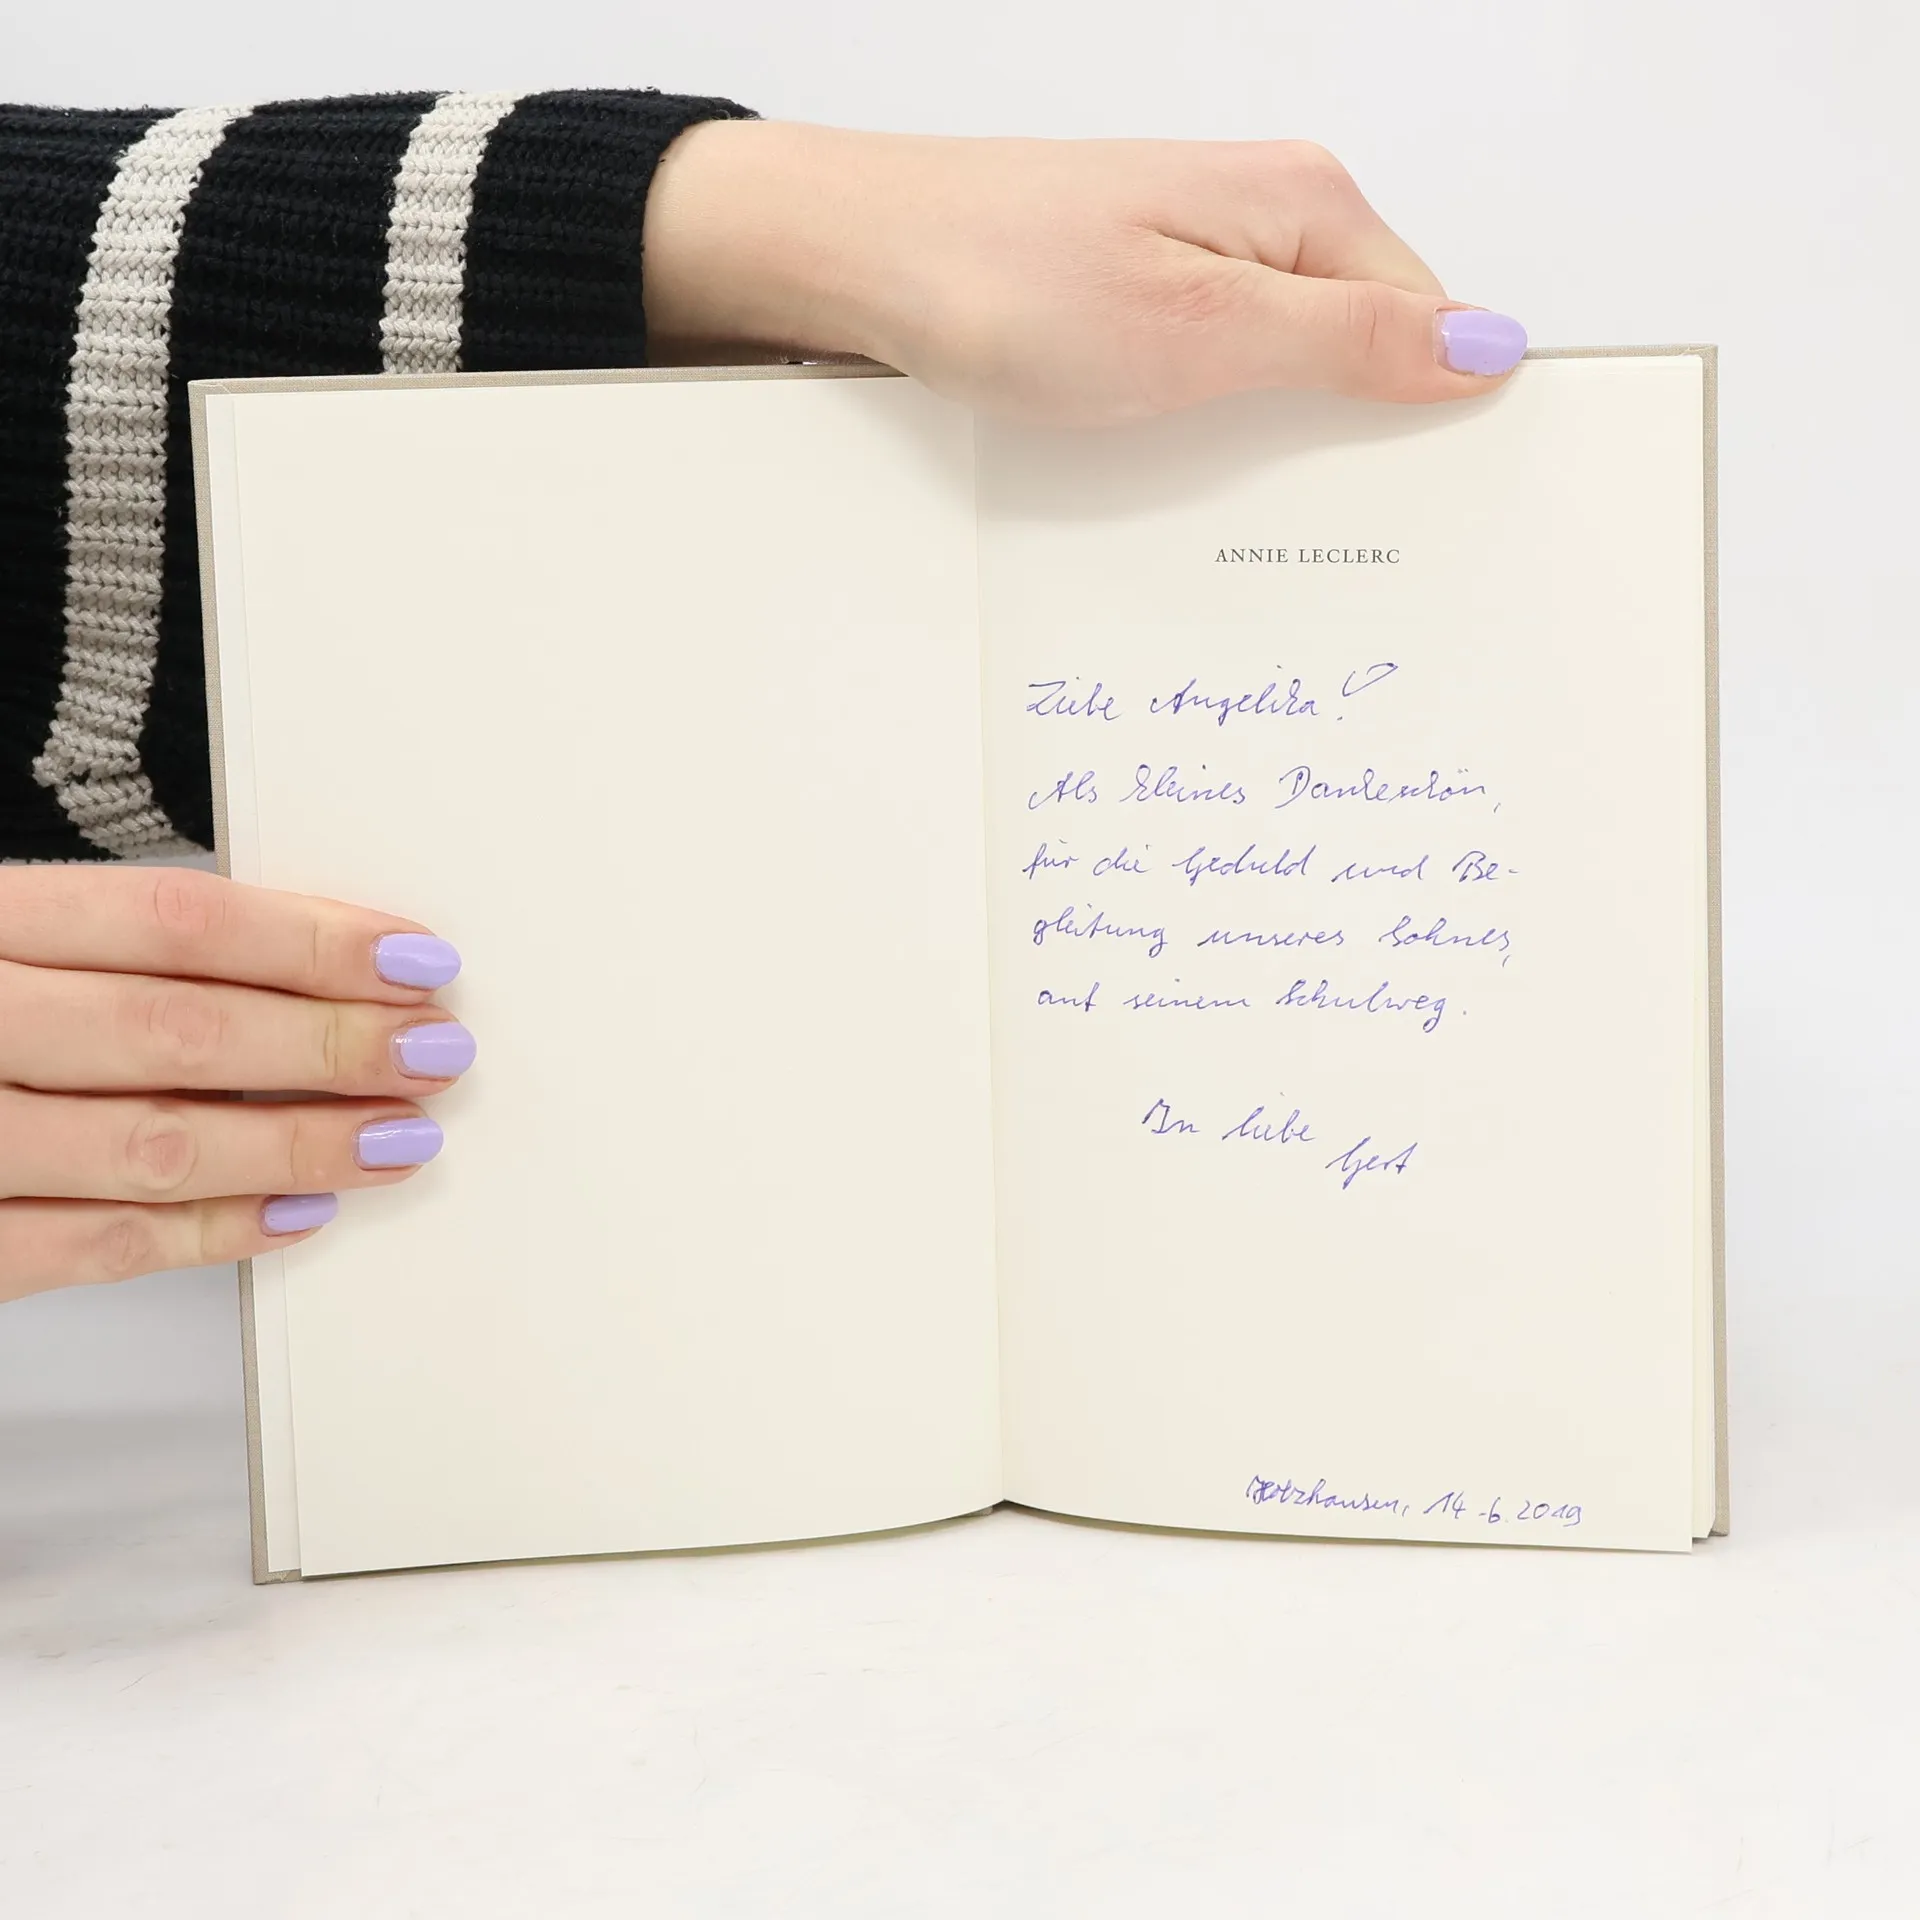 ANNIE LECLERC
Liebe Angelika! ♡
Als kleines Dankeschön,
für die Geduld und Be-
gleitung unseres Sohnes,
auf seinem Schulweg.
In Liebe
Gert
Holzhausen, 14.6.2019